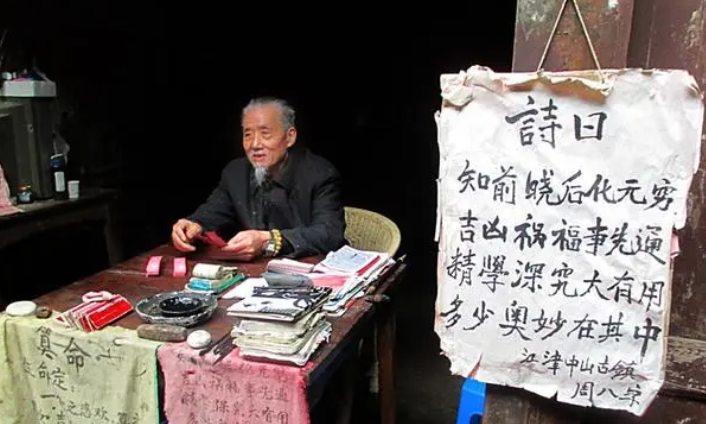 詩曰
知前晓后化元穷
吉凶祸福事先通
精學深究大有用
多少奥妙在其中
江津中山古鎮
周八字
算命
吉凶祸福事先通
精學深究大有用